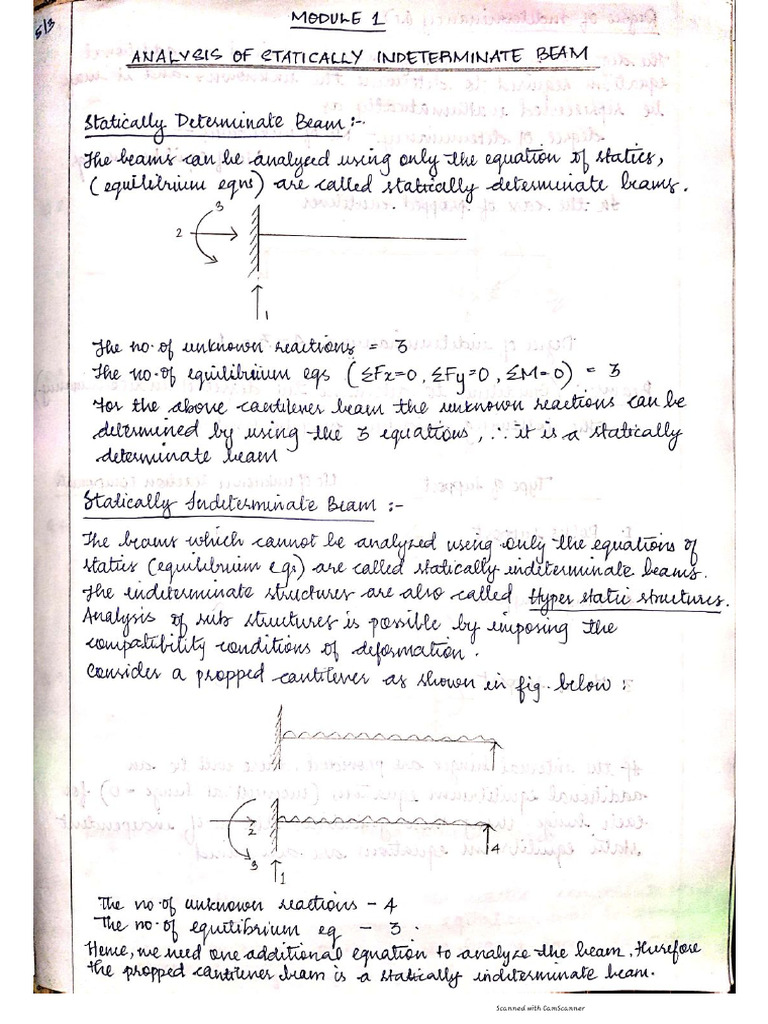 5/3
MODULE 1
ANALYSIS OF STATICALLY INDETERMINATE BEAM
Statically Determinate Beam :-
The beams can be analyzed using only the equation of statics,
(equilibrium eqns) are called statically determinate beams.
3
2
1
The no. of unknown reactions = 3
The no. of equilibrium eqs (ΣFx=0, ΣFy=0, ΣM=0) = 3
For the above cantilever beam the unknown reactions can be
determined by using the 3 equations, ∴ it is a statically
determinate beam
Statically Indeterminate Beam :-
The beams which cannot be analyzed using only the equations of
statics (equilibrium eqs) are called statically indeterminate beams.
The indeterminate structures are also called Hyper static structures.
Analysis of sub structures is possible by imposing the
compatibility conditions of deformation.
Consider a propped cantilever as shown in fig. below :
2
3
1
4
The no of unknown reactions - 4
The no of equilibrium eq - 3.
Hence, we need one additional equation to analyze the beam. Therefore
the propped cantilever beam is a statically indeterminate beam.
Scanned with CamScanner